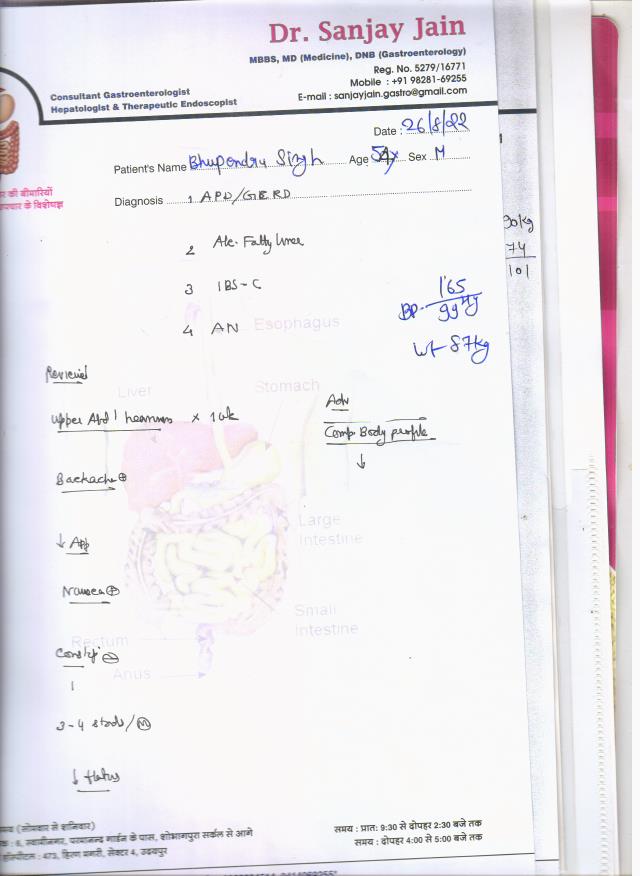 Dr. Sanjay Jain
MBBS, MD (Medicine), DNB (Gastroenterology)
Reg. No. 5279/16771
Mobile : +91 98281-69255
E-mail : sanjayjain.gastro@gmail.com
Consultant Gastroenterologist
Hepatologist & Therapeutic Endoscopist
Date : 26/8/22
Patient's Name Bhupendra Singh Age 54y Sex M
र की बीमारियों
पचार के विशेषज्ञ
Diagnosis 1 APD/GERD
2 Alc. Fatty liver
3 IBS-C
4 AN
90kg
74
101
BP- 165
99
Wt- 87kg
Esophagus
Reviewed
Liver
Stomach
Upper Abd heaviness x 1 wk
Adv
Comp Body profile
↓
Backache ⊕
Large
Intestine
↓ App
Nausea ⊕
Small
Intestine
Rectum
Constip ⊖
Anus
3-4 stools/
↓ flatus
मय (सोमवार से शनिवार)
क : 6, स्वामीनगर, परमानन्द गार्डन के पास, शोभागपुरा सर्कल से आगे
हॉस्पीटल : 473, हिरण मगरी, सेक्टर 4, उदयपुर
समय : प्रात: 9:30 से दोपहर 2:30 बजे तक
समय : दोपहर 4:00 से 5:00 बजे तक